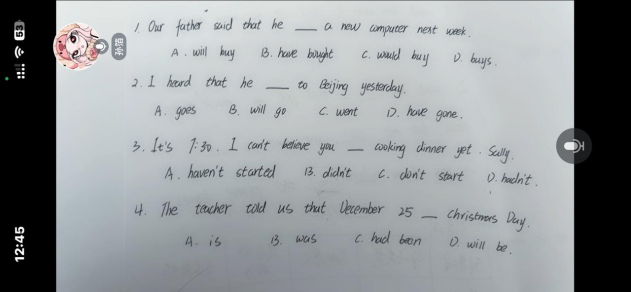 1. Our father said that he ___ a new computer next week.
A. will buy B. have bought C. would buy D. buys.
2. I heard that he ___ to Beijing yesterday.
A. goes B. will go C. went D. have gone.
3. It's 7:30. I can't believe you ___ cooking dinner yet. Sally.
A. haven't started B. didn't C. don't start D. hadn't.
4. The teacher told us that December 25 ___ Christmas Day.
A. is B. was C. had been D. will be.
53
12:45